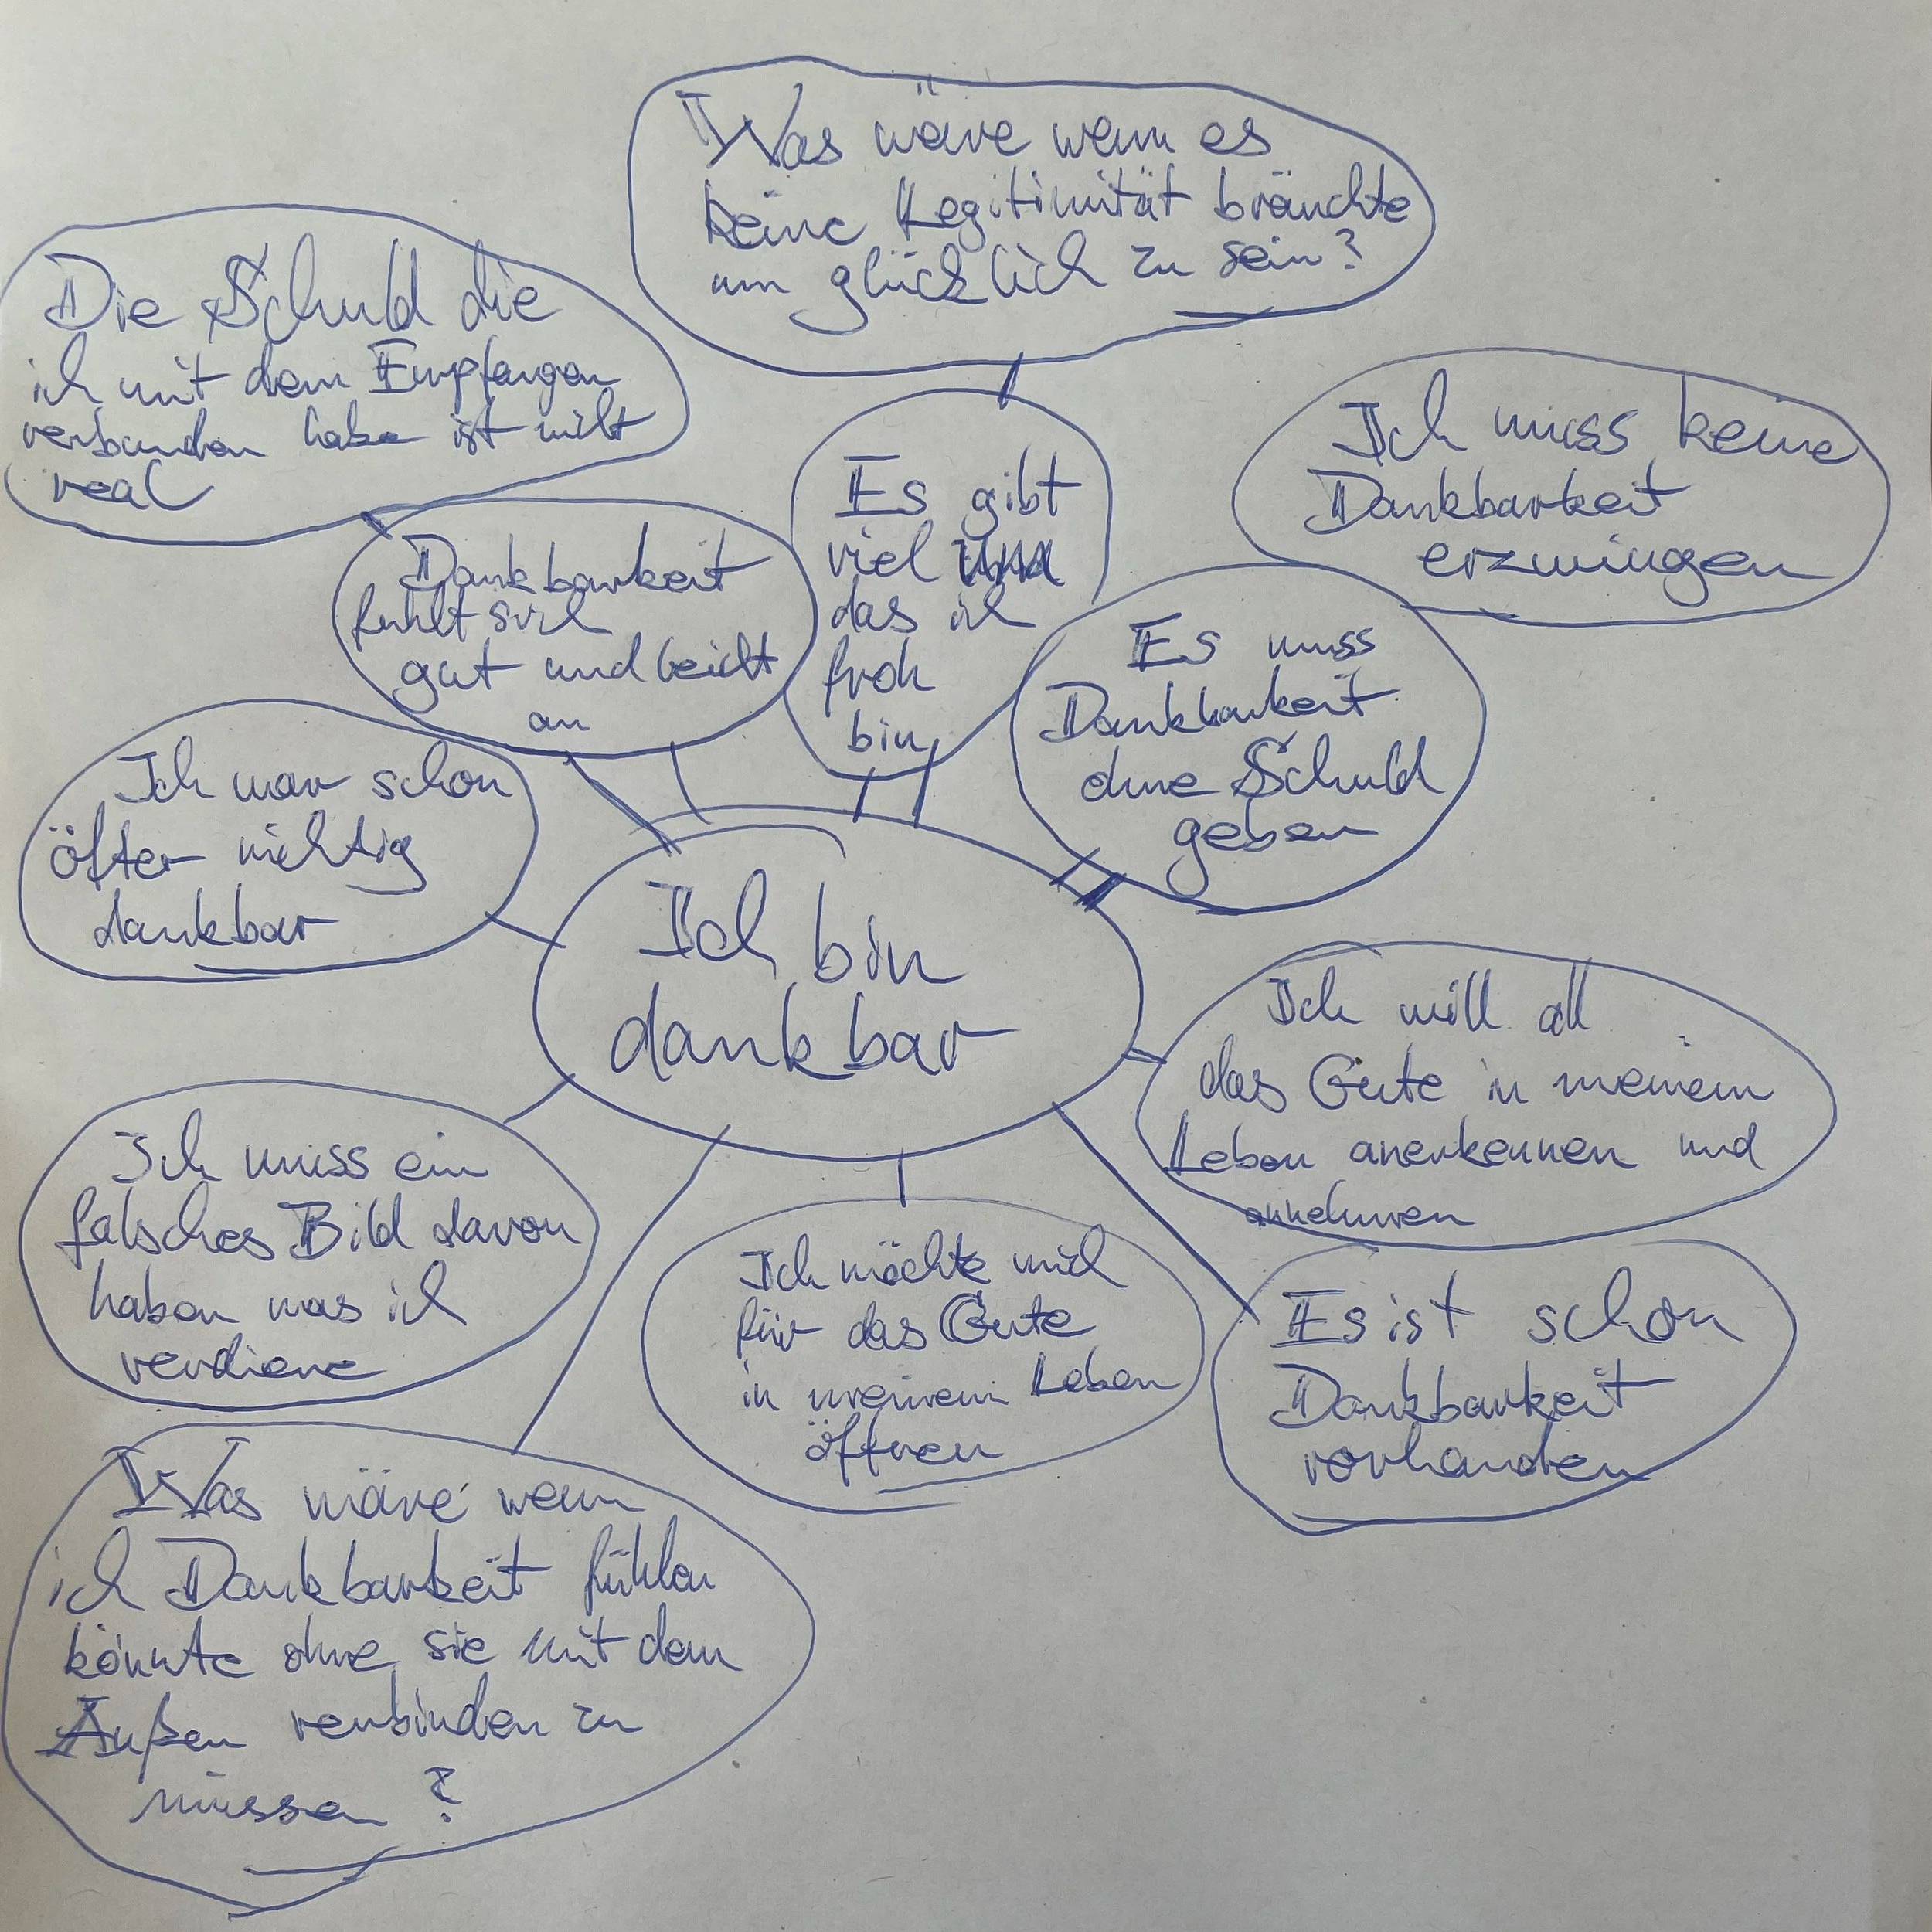 Was wäre wenn es
keine Legitimität bräuchte
um glücklich zu sein?
Die Schuld die
ich mit dem Empfangen
verbunden habe ist nicht
real
Ich muss keine
Dankbarkeit
erzwingen
Es gibt
viel
das ich
froh
bin
Dankbarkeit
fühlt sich
gut und leicht
an
Es muss
Dankbarkeit
ohne Schuld
geben
Ich war schon
öfter richtig
dankbar
Ich bin
dankbar
Ich will all
das Gute in meinem
Leben anerkennen und
annehmen
Ich muss ein
falsches Bild davon
haben was ich
verdiene
Ich möchte mich
für das Gute
in meinem Leben
öffnen
Es ist schon
Dankbarkeit
vorhanden
Was wäre wenn
ich Dankbarkeit fühlen
könnte ohne sie mit dem
Außen verbinden zu
müssen?